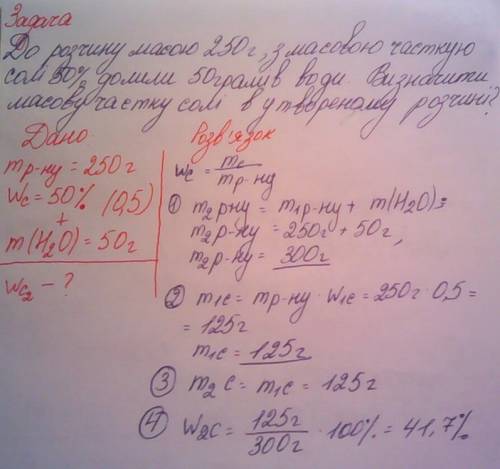 Задача
До розчину масою 250г, з масовою часткую
солі 50% долили 50грамів води. Визначити
масову частку солі в утвореному розчині?
Дано
mр-ну = 250г
Wс = 50% (0,5)
+
m(H₂O) = 50г
Wс₂ - ?
Розв'язок
Wс = mс / mр-ну
① m₂рну = m₁р-ну + m(H₂O)=
m₂р-ну = 250г + 50г,
m₂р-ну = 300г
② m₁с = mр-ну · W₁с = 250г · 0,5 =
= 125г
m₁с = 125г
③ m₂с = m₁с = 125г
④ W₂с = 125г / 300г · 100% = 41,7%